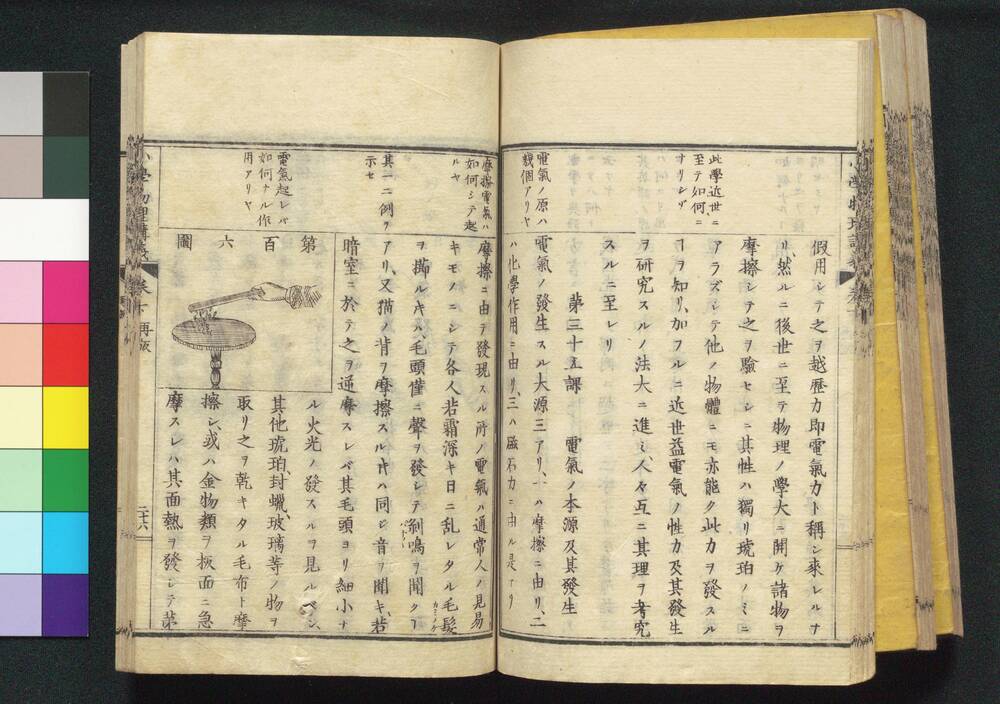 假用シテ之ヲ越歴力卽電氣力ト稱シ來レルナ
リ、然ルニ後世ニ至テ物理ノ學大ニ開ケ諸物ヲ
摩擦シテ之ヲ驗セシニ其性ハ獨リ琥珀ノミニ
此學近世ニ
至テ如何ニ
ナリシゾ
アラズシテ他ノ物體ニモ亦能ク此力ヲ發スル
ヿヲ知リ、加フルニ近世益電氣ノ性力及其發生
ヲ研究スルノ法大ニ進ミ、人々互ニ其理ヲ考究
スルニ至レリ
第三十五課 電氣ノ本源及其發生
電氣ノ原ハ
幾個アリヤ
電氣ノ發生スル大源三アリ、一ハ摩擦ニ由リ、二
ハ化學作用ニ由リ、三ハ磁石力ニ由ル是ナリ
摩擦電氣ハ
如何シテ起
ルヤ
摩擦ニ由テ發現スル所ノ電氣ハ通常人ノ見易
キモノニシテ各人若霜深キ日ニ乱レタル毛髮
ヲ擳ルキハ、毛頭僅ニ聲ヲ發シテ剃鳴ヲ聞クヿ
其一二例ヲ
示セ
アリ、又猫ノ背ヲ摩擦スル片ハ同ジ音ヲ聞キ、若
暗室ニ於テ之ヲ逆摩スレバ其毛頭ヨリ細小ナ
電氣起レバ
如何ナル作
用アリヤ
第百六圖
ル火光ノ發スルヲ見ルベシ、
其他琥珀、封蠟、玻璃等ノ物ヲ
取リ之ヲ乾キタル毛布ト摩
擦シ、或ハ金物類ヲ板面ニ急
摩スレハ其面熱ヲ發シテ第
小學物理講義 卷十 再版
二十六